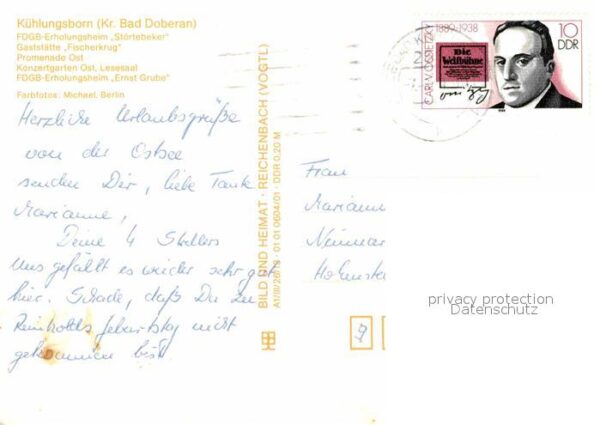 Kühlungsborn (Kr. Bad Doberan)
FDGB-Erholungsheim „Störtebeker"
Gaststätte „Fischerkrug"
Promenade Ost
Konzertgarten Ost, Lesesaal
FDGB-Erholungsheim „Ernst Grube"
Farbfotos: Michael, Berlin
Herzliche Urlaubsgrüße
von der Ostsee
senden Dir, liebe Tante
Marianne,
Deine 4
Uns gefällt es wieder sehr gut
hier. Schade, daß Du zu
Geburtstag nicht
gekommen bist.
BILD UND HEIMAT · REICHENBACH (VOGTL)
01 01 0604/01 · DDR 0,20 M
CARL V. OSSIETZKY
1889-1938
Die
Weltbühne
10
DDR
Frau
Mariann
9
privacy protection
Datenschutz